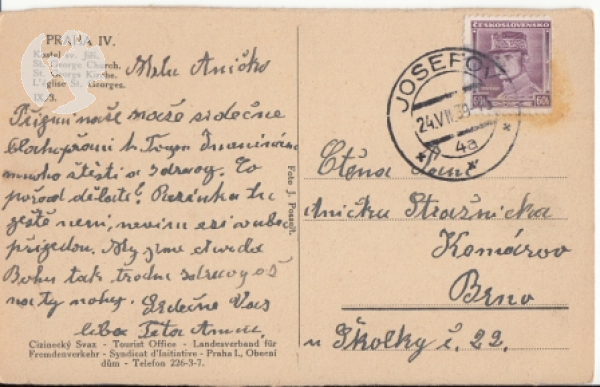 PRAHA IV.
Kostel sv. Jiří.
St. Georgs Church.
St. Georgs Kirche.
L'église St. Georges.
IX/3.
Milá Aničko
Přijmi naše srdečné
Blahopřání k Tvým
mnoho štěstí a zdraví. Co
pořád děláte?
ještě není, nevím
přijedou. My jsme
Bohu tak trochu zdraví až
na ty nohy. Srdečně Vás
líbá Teta Anna.
Cizinecký Svaz - Tourist Office - Landesverband für
Fremdenverkehr - Syndicat d'Initiative - Praha I., Obecní
dům - Telefon 226-3-7.
Foto J. Posselt.
ČESKOSLOVENSKO
60h 60h
JOSEFOV
24.VII.39
4a
Ctěná Paní
Anička Stražnicka
Komárov
Brno
u Školky č. 22.